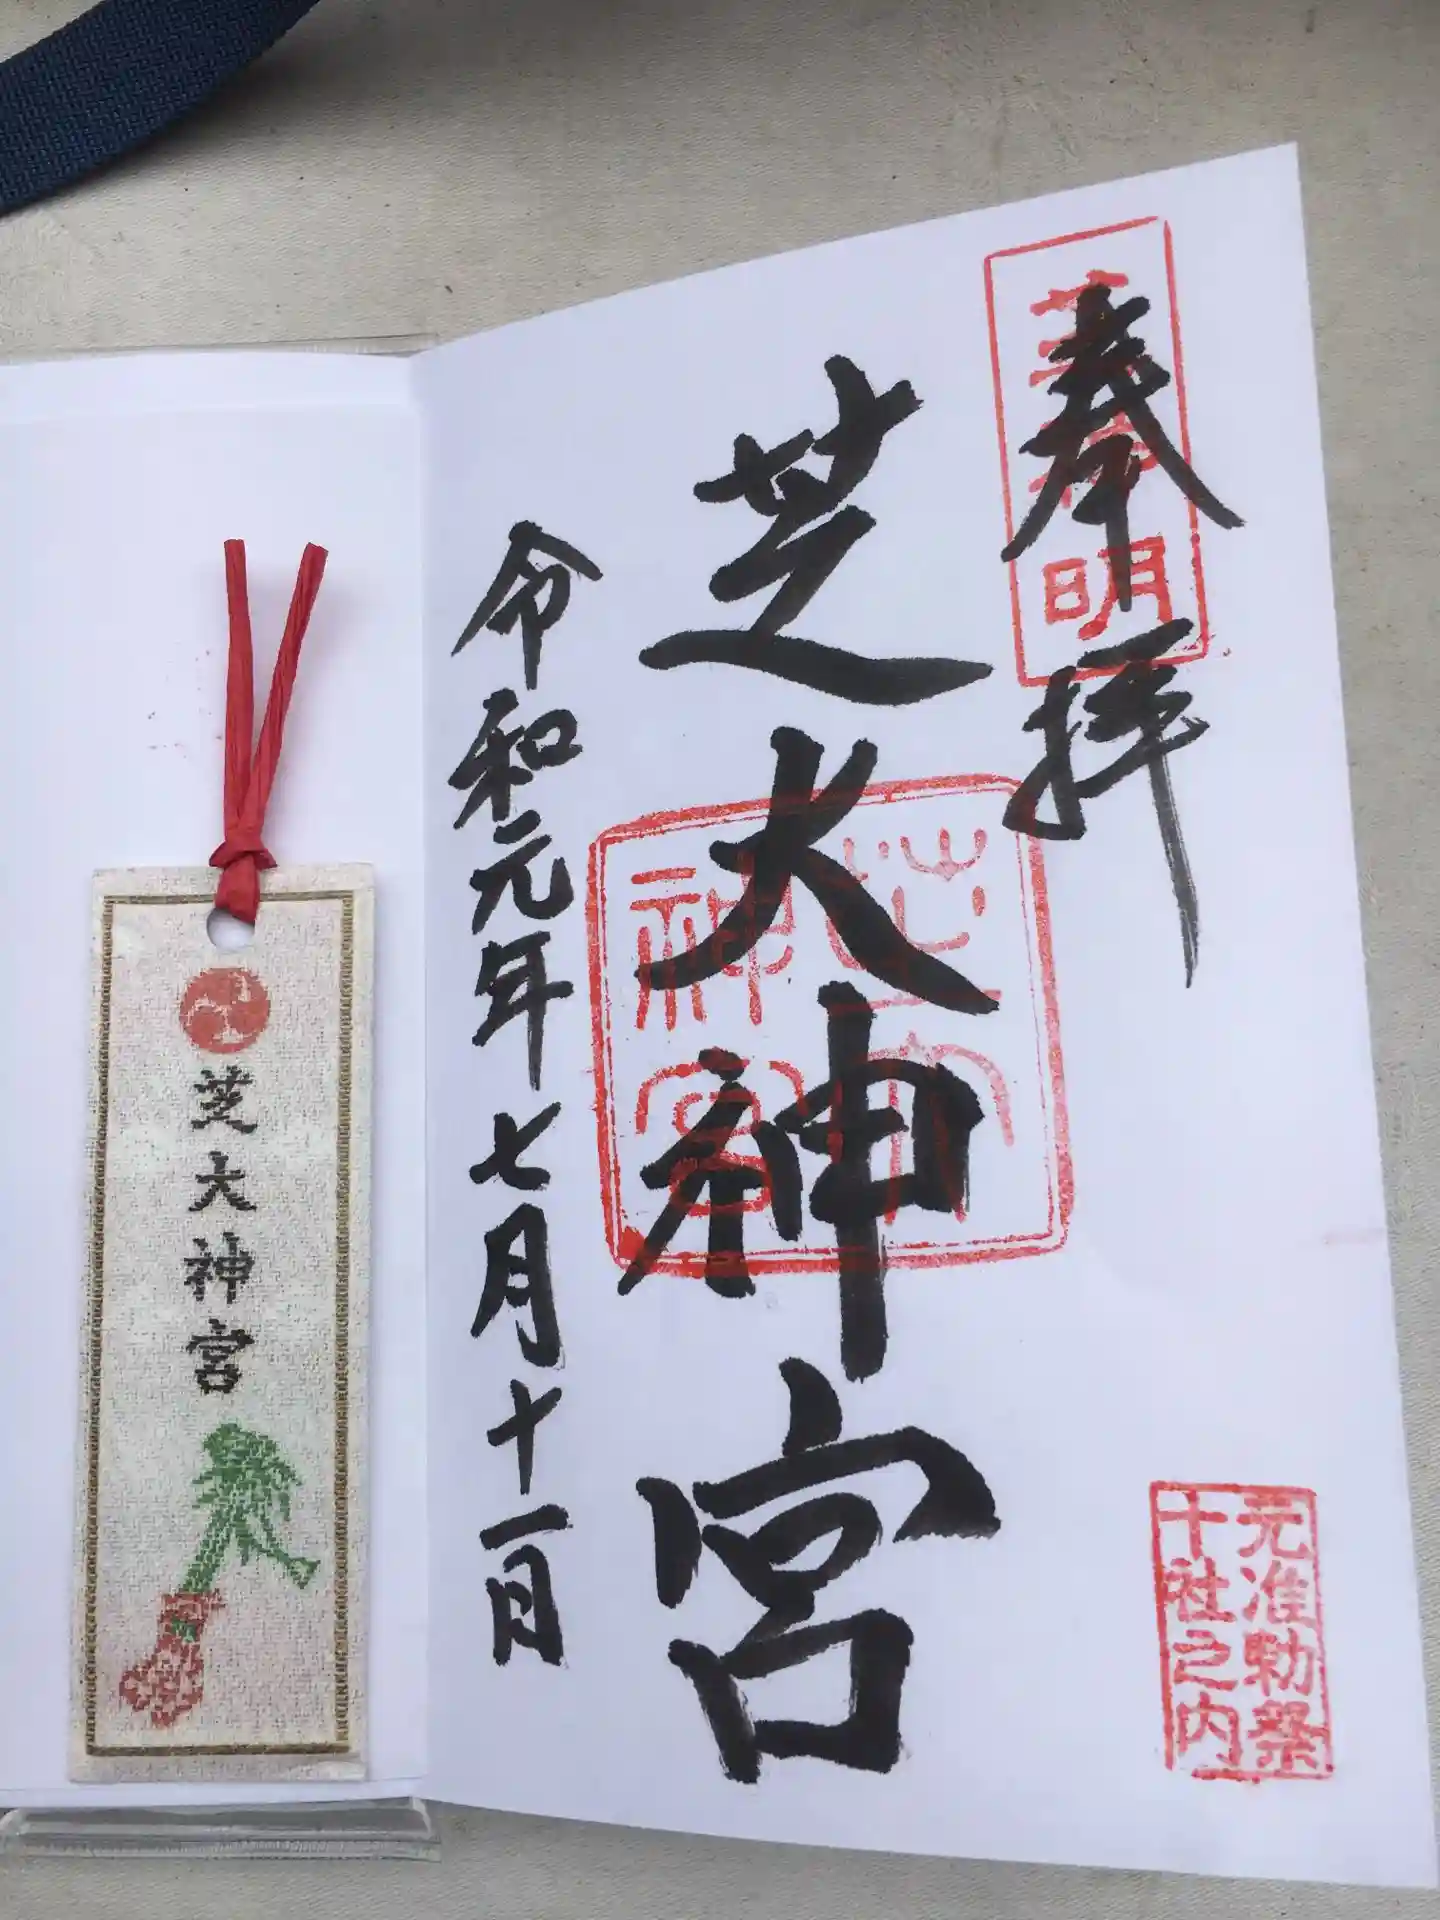 奉拝
芝神明
元准勅祭
十社之内
芝大神宮
芝大
神宮
令和元年七月十一日
芝大神宮